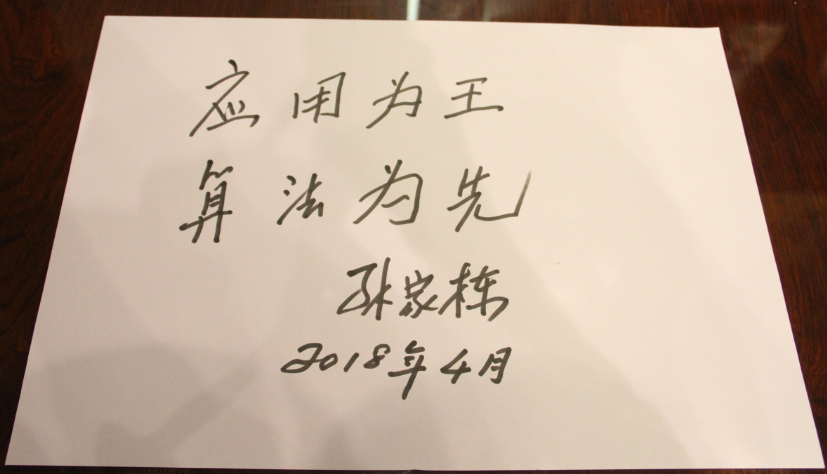 应用为王
算法为先
孙家栋
2018年4月